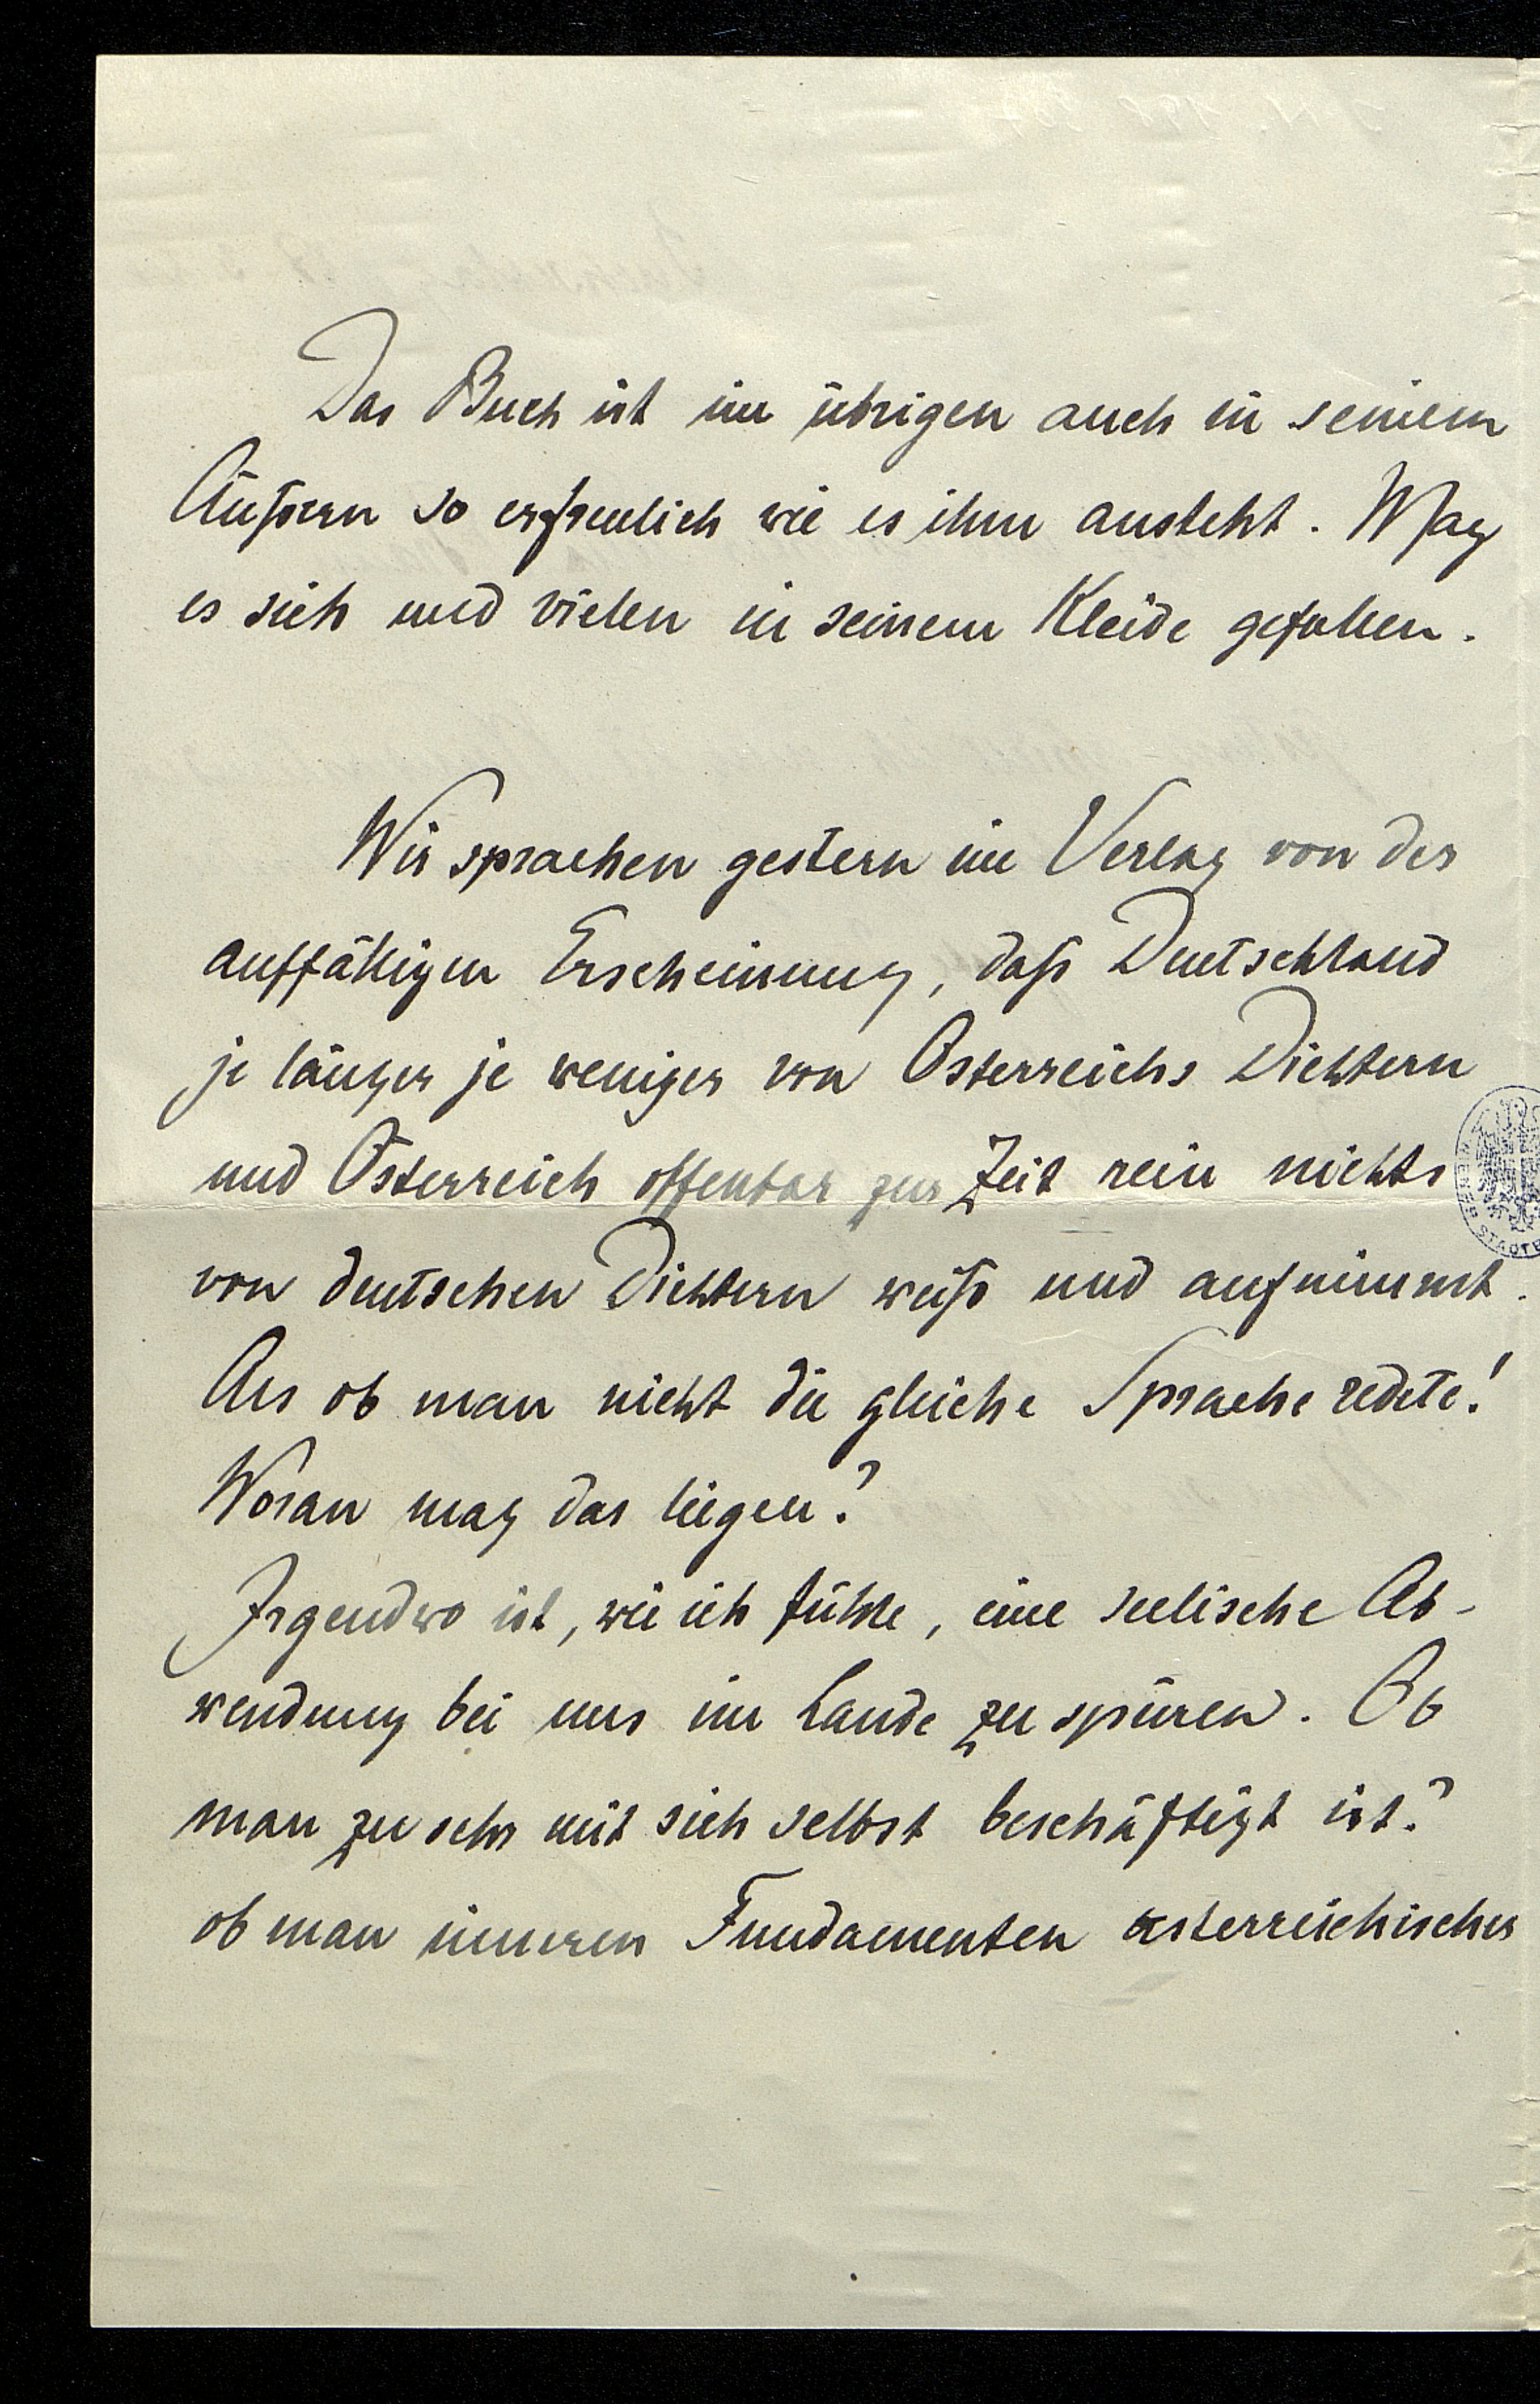 Das Buch ist im übrigen auch in seinem
Äußern so erfreulich wie es ihm ansteht. Mag
es sich und vielen in seinem Kleide gefallen.
Wir sprachen gestern im Verlag von der
auffälligen Erscheinung, daß Deutschland
je länger je weniger von Österreichs Dichtern
und Österreich offenbar zur Zeit rein nichts
von deutschen Dichtern weiß und aufnimmt.
Als ob man nicht die gleiche Sprache redete!
Woran mag das liegen?
Irgendwo ist, wie ich fühle, eine seelische Ab-
wendung bei uns im Lande zu spüren. Ob
man zu sehr mit sich selbst beschäftigt ist?
ob man inneren Fundamenten österreichischer